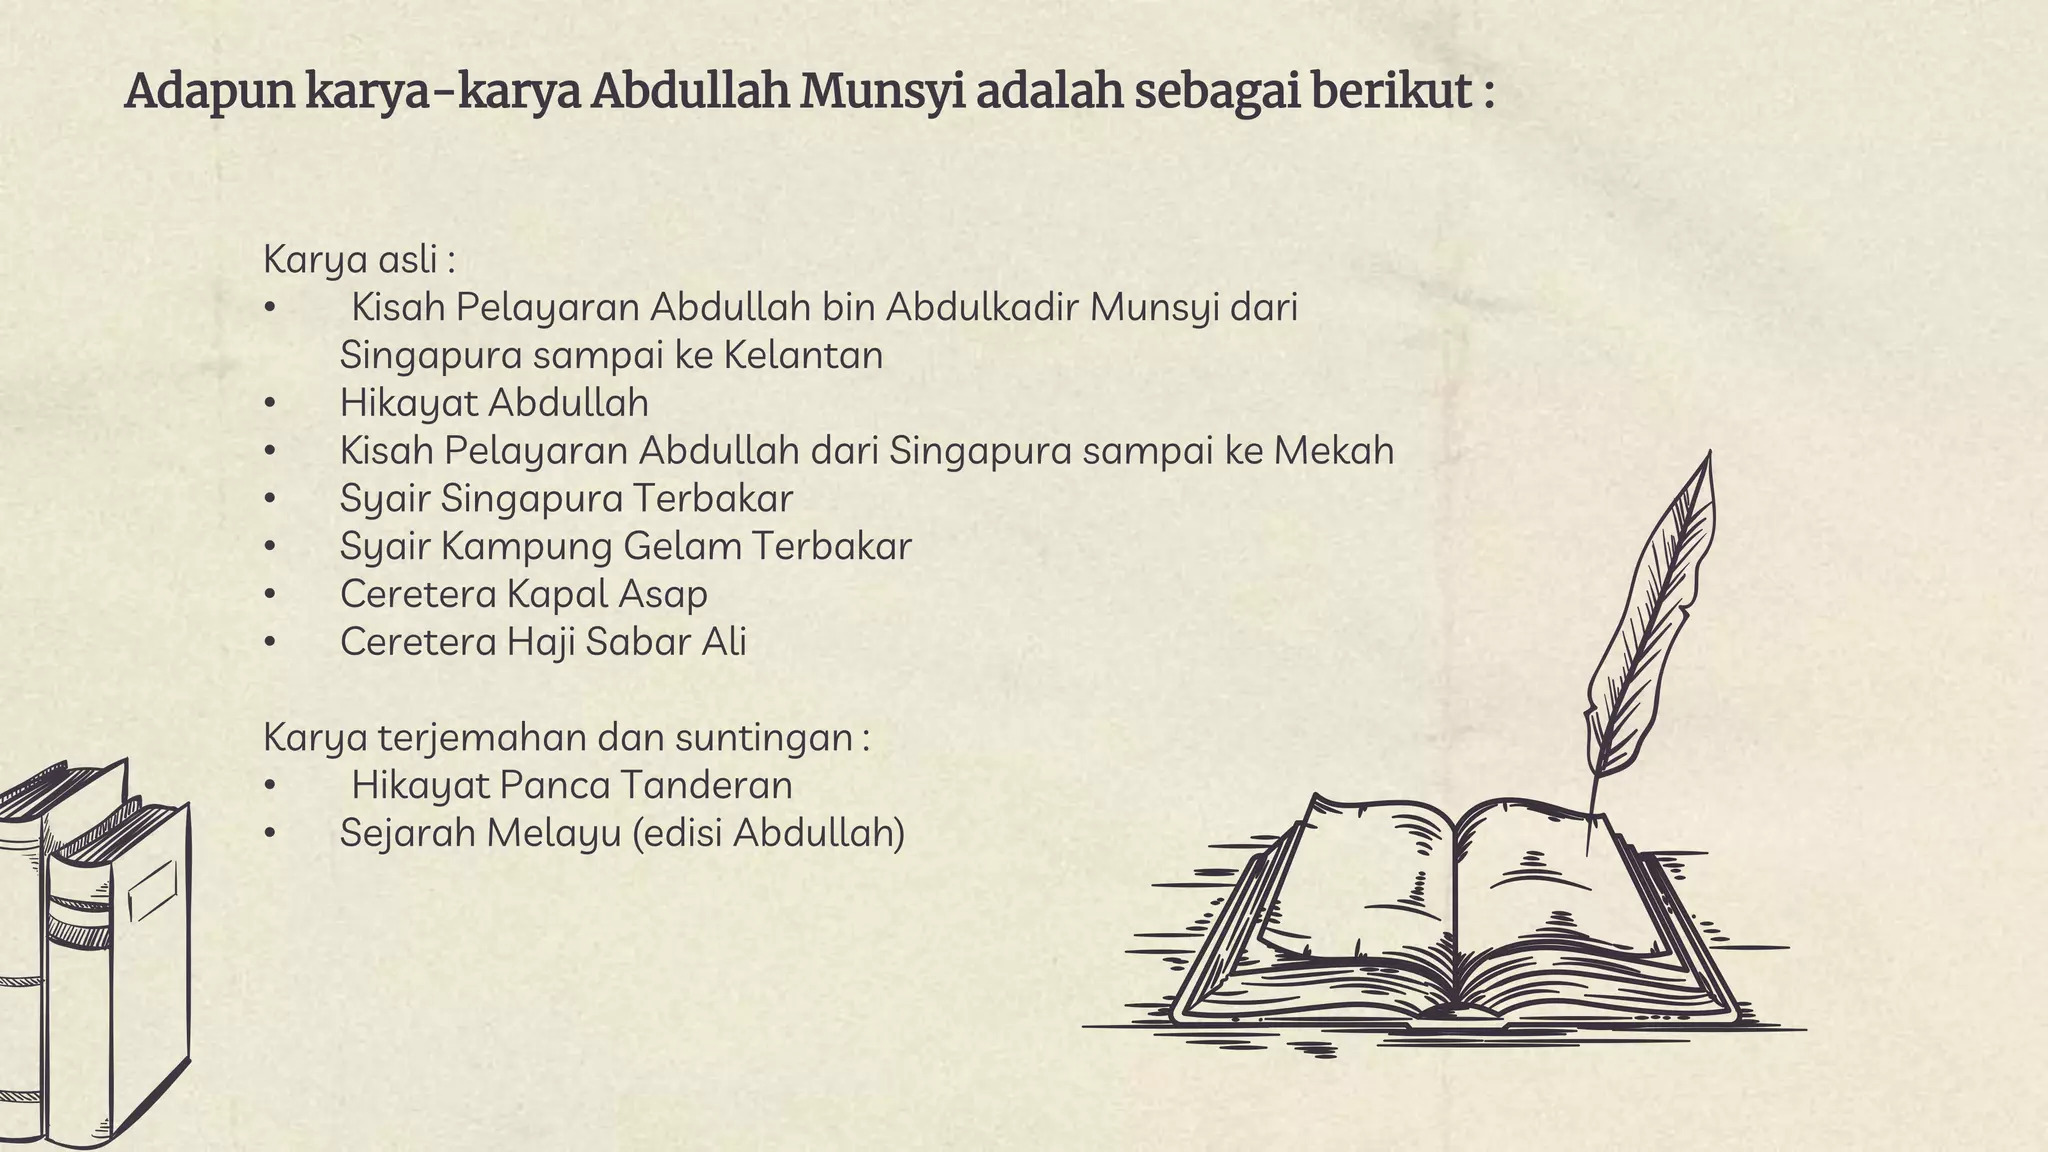 Adapun karya-karya Abdullah Munsyi adalah sebagai berikut :
Karya asli :
• Kisah Pelayaran Abdullah bin Abdulkadir Munsyi dari
Singapura sampai ke Kelantan
• Hikayat Abdullah
• Kisah Pelayaran Abdullah dari Singapura sampai ke Mekah
• Syair Singapura Terbakar
• Syair Kampung Gelam Terbakar
• Ceretera Kapal Asap
• Ceretera Haji Sabar Ali
Karya terjemahan dan suntingan :
• Hikayat Panca Tanderan
• Sejarah Melayu (edisi Abdullah)